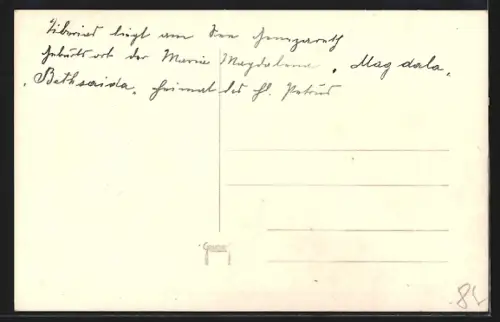 Tiberias liegt am See Genezareth
Geburtsort der Marie Magdalena „Magdala“
„Bethsaida“ Heimat des hl. Petrus